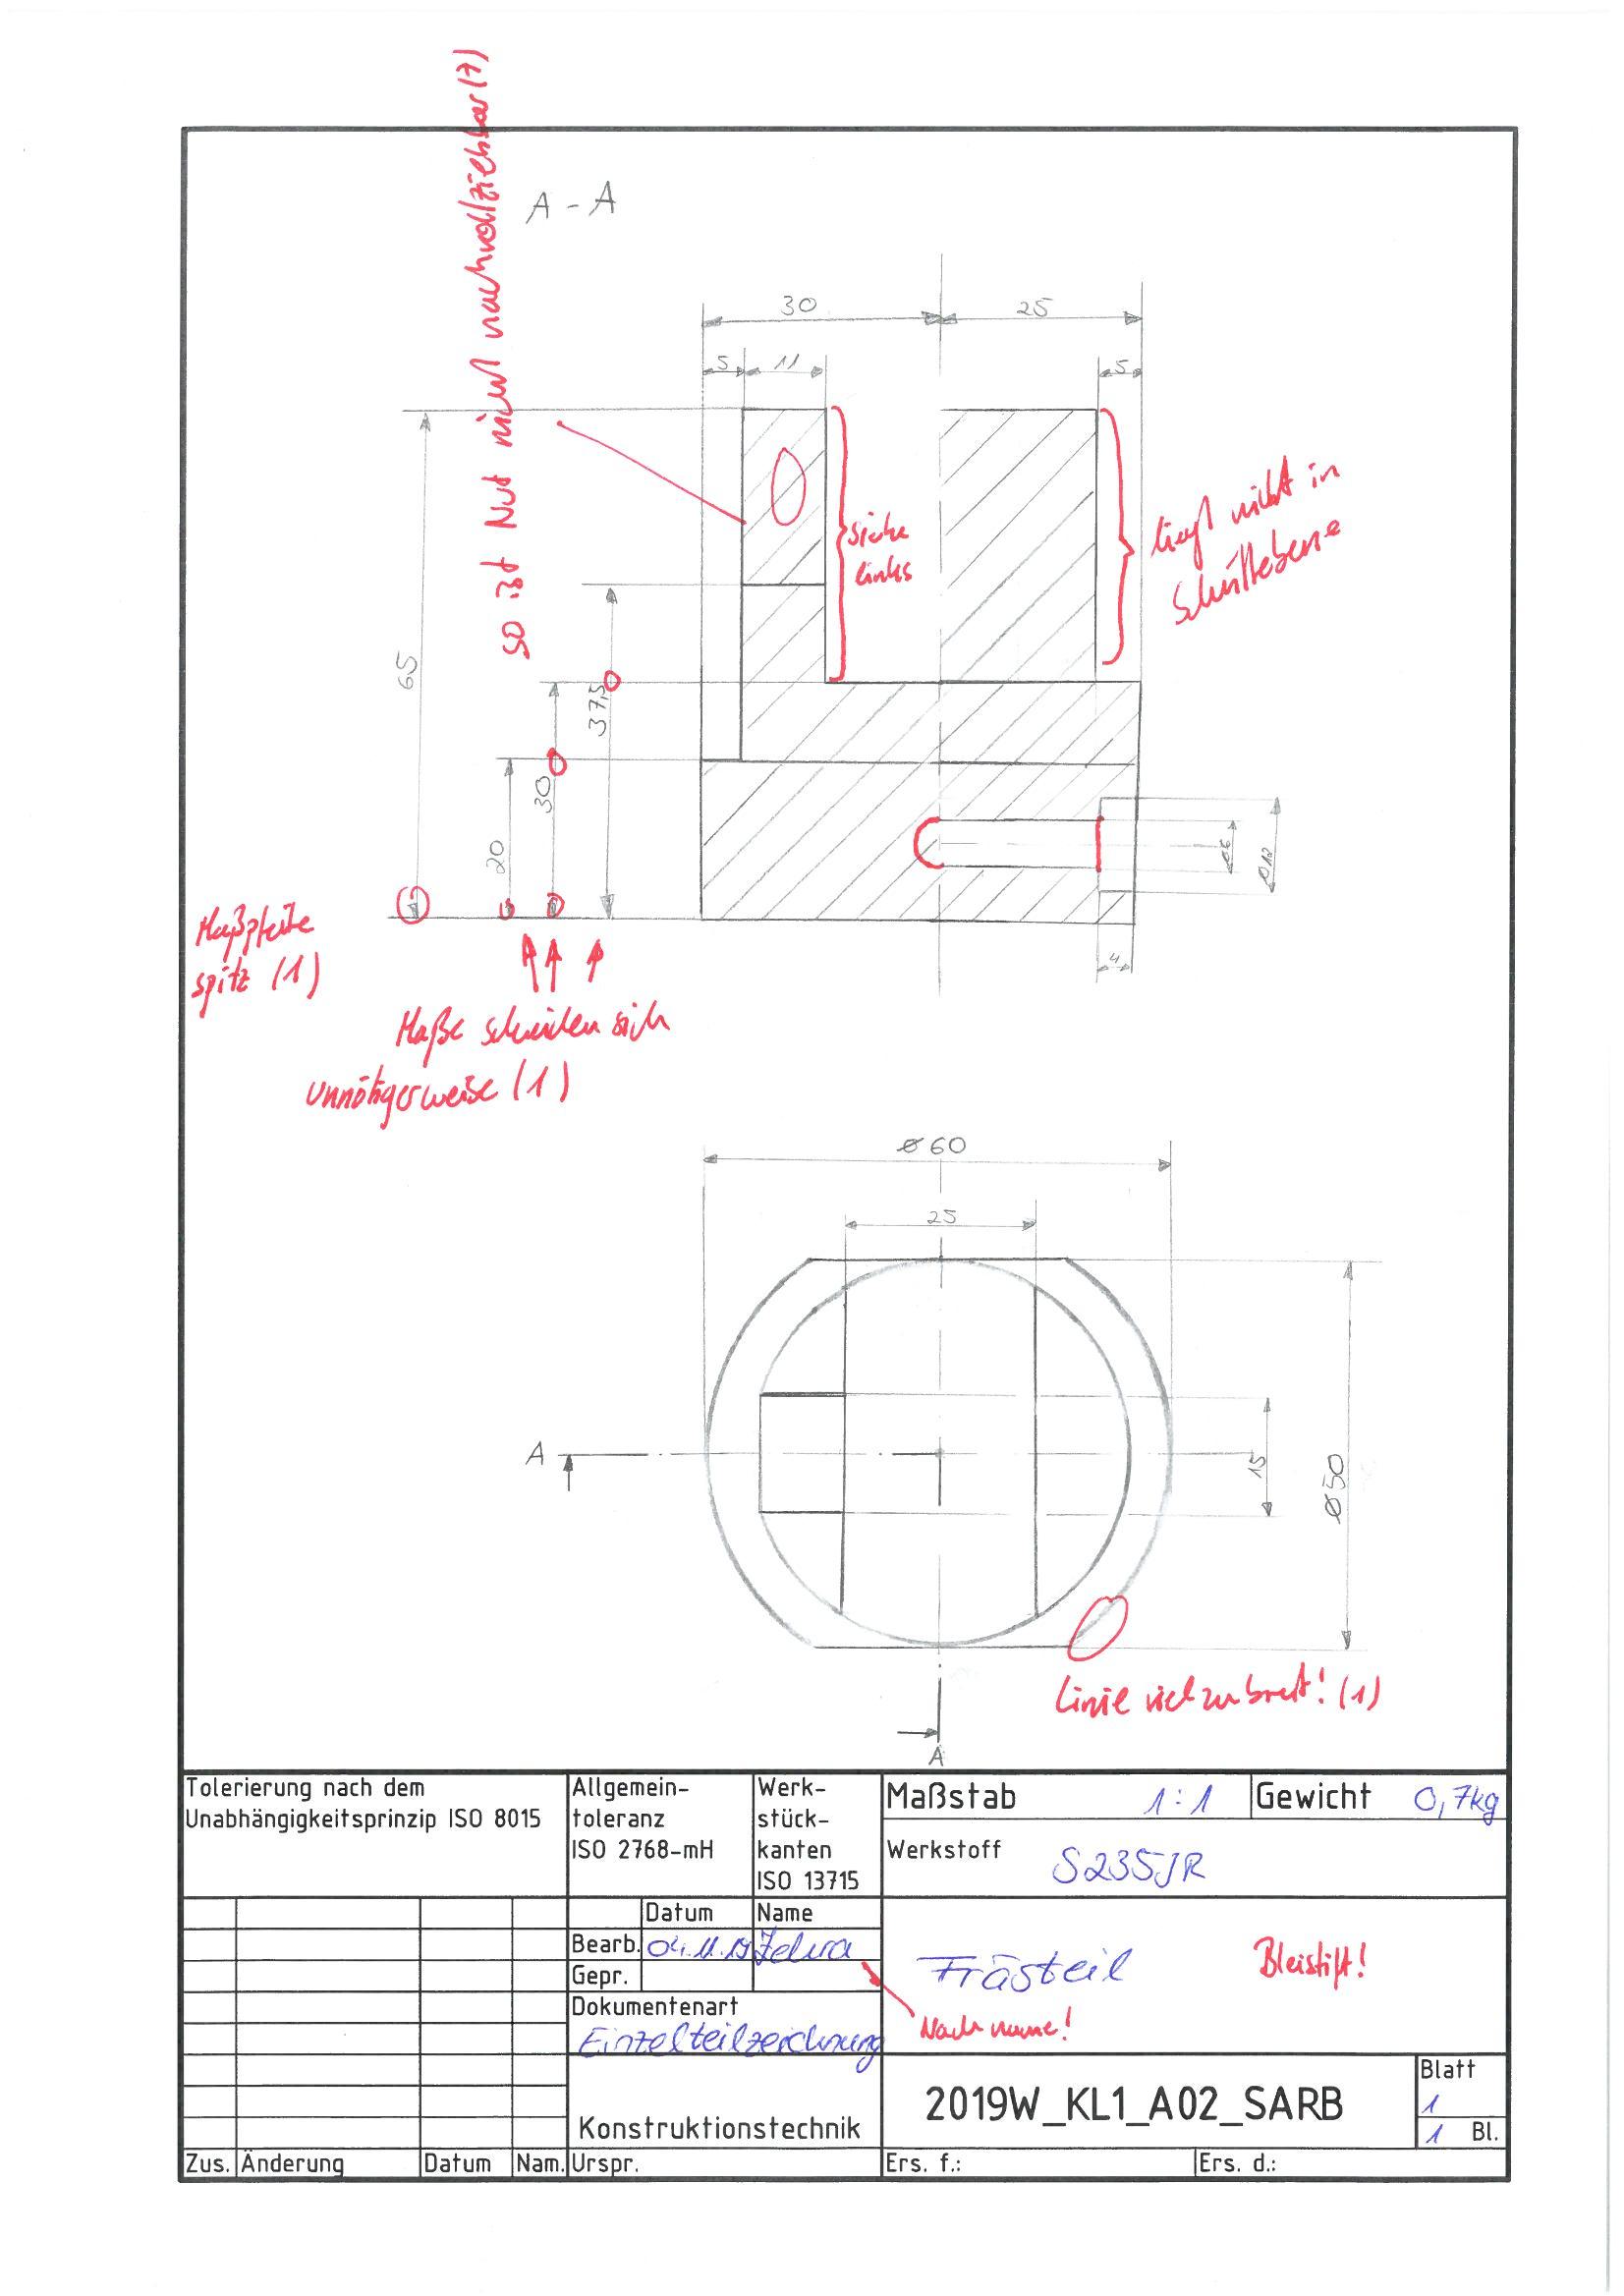 so ist Nut nicht nachvollziehbar (7)
A - A
30
25
5
11
5
siehe
links
liegt nicht in
Schnittebene
65
37,5
30
20
ø6
ø12
4
Maßpfeile
spitz (1)
Maße schneiden sich
unnötigerweise (1)
ø 60
25
A
15
ø50
Linie viel zu breit! (1)
A
Tolerierung nach dem
Unabhängigkeitsprinzip ISO 8015
Allgemein-
toleranz
ISO 2768-mH
Werk-
stück-
kanten
ISO 13715
Maßstab 1:1
Gewicht 0,7kg
Werkstoff S235JR
Datum Name
Bearb. 04.11.19
Gepr.
Dokumentenart
Einzelteilzeichnung
Frästeil
Bleistift!
Nachname!
Konstruktionstechnik
2019W_KL1_A02_SARB
Blatt
1
1 Bl.
Zus. Änderung Datum Nam. Urspr. Ers. f.: Ers. d.: